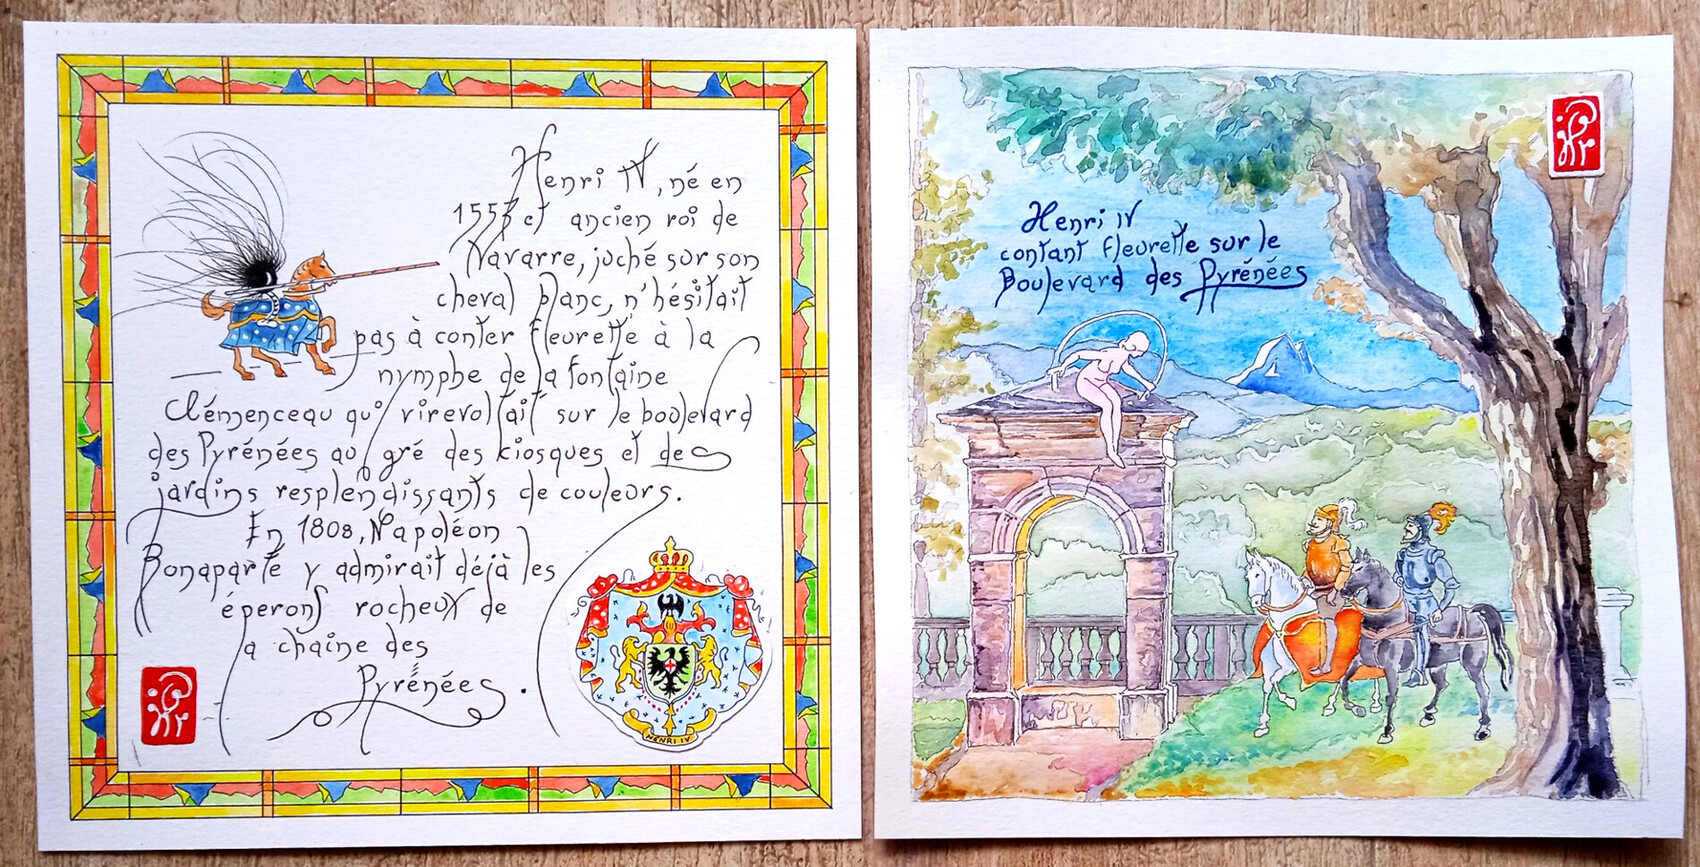 Henri IV, né en
1553 et ancien roi de
Navarre, juché sur son
cheval blanc, n'hésitait
pas à conter fleurette à la
nymphe de la fontaine
Clémenceau qui virevoltait sur le boulevard
des Pyrénées au gré des kiosques et des
jardins resplendissants de couleurs.
En 1808, Napoléon
Bonaparte y admirait déjà les
éperons rocheux de
la chaîne des
Pyrénées.
HENRI IV
Henri IV
contant fleurette sur le
Boulevard des Pyrénées